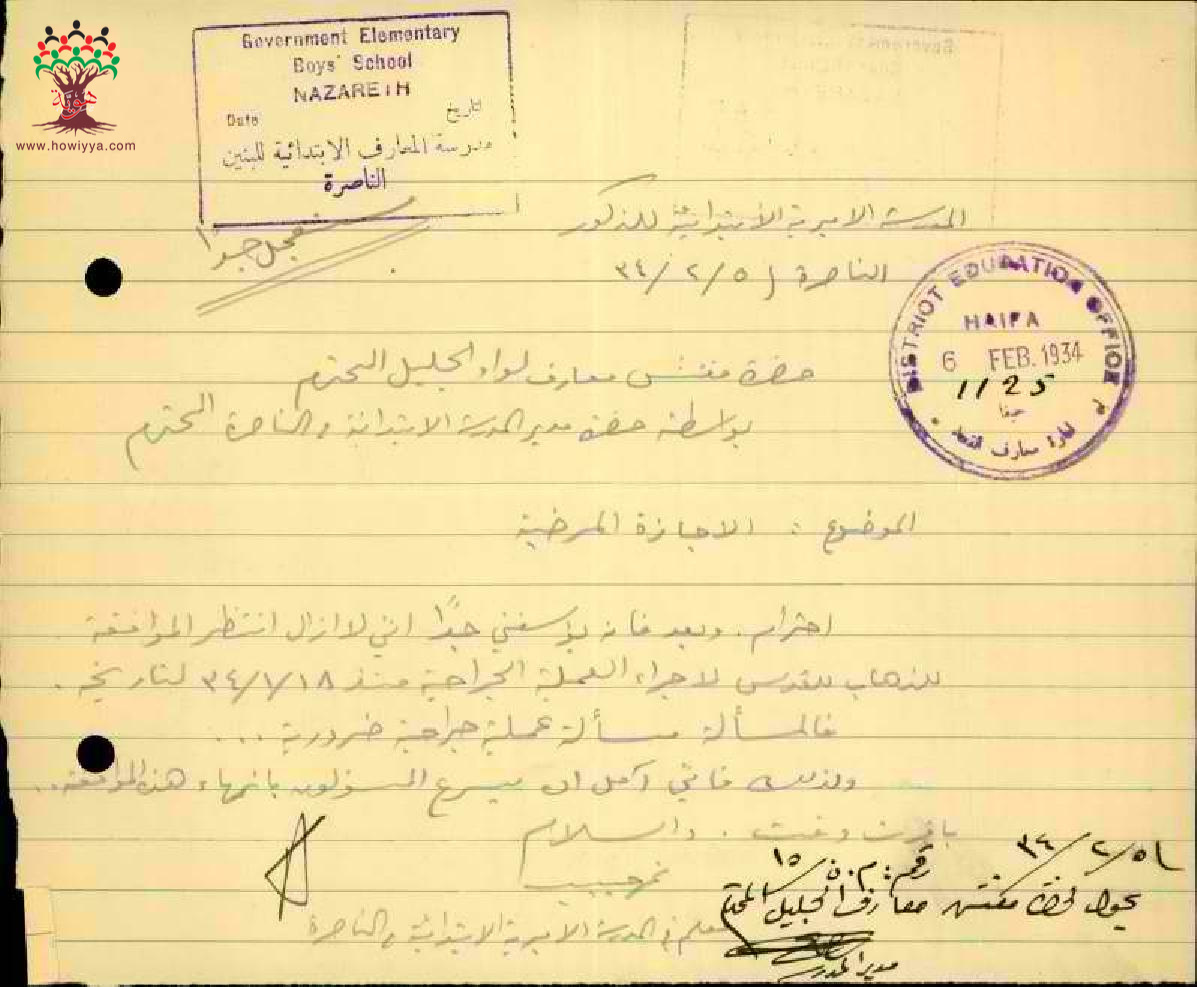 Government Elementary
Boys' School
NAZARETH
Date تاريخ
مدرسة المعارف الابتدائية للبنين
الناصرة
www.howiyya.com
مستعجل جدا
المدرسة الاميرية الابتدائية للذكور
الناصرة ٥/٢/٣٤
DISTRICT EDUCATION OFFICE
HAIFA
6 FEB. 1934
1125
حيفا
حضرة مفتش معارف لواء الجليل المحترم
بواسطة حضرة مدير المدرسة الابتدائية في الناصرة المحترم
الموضوع : الاجازة المرضية
احترام. وبعد فانه يؤسفني جدًا اني لا ازال انتظر الموافقة
للذهاب للقدس لاجراء العملية الجراحية منذ ٣٤/١/١٨ لتاريخه.
فالمسألة مسألة عملية جراحية ضرورية ...
ولذلك فاني آمل ان يسرع المسؤولون بانهاء هذه الموافقة..
باقرب وقت. والسلام
معلم في المدرسة الاميرية الابتدائية في الناصرة
٥/٢/٣٤
رقم: م.ن/١٥
يحول لحضرة مفتش معارف الجليل المحترم
مدير المدرسة